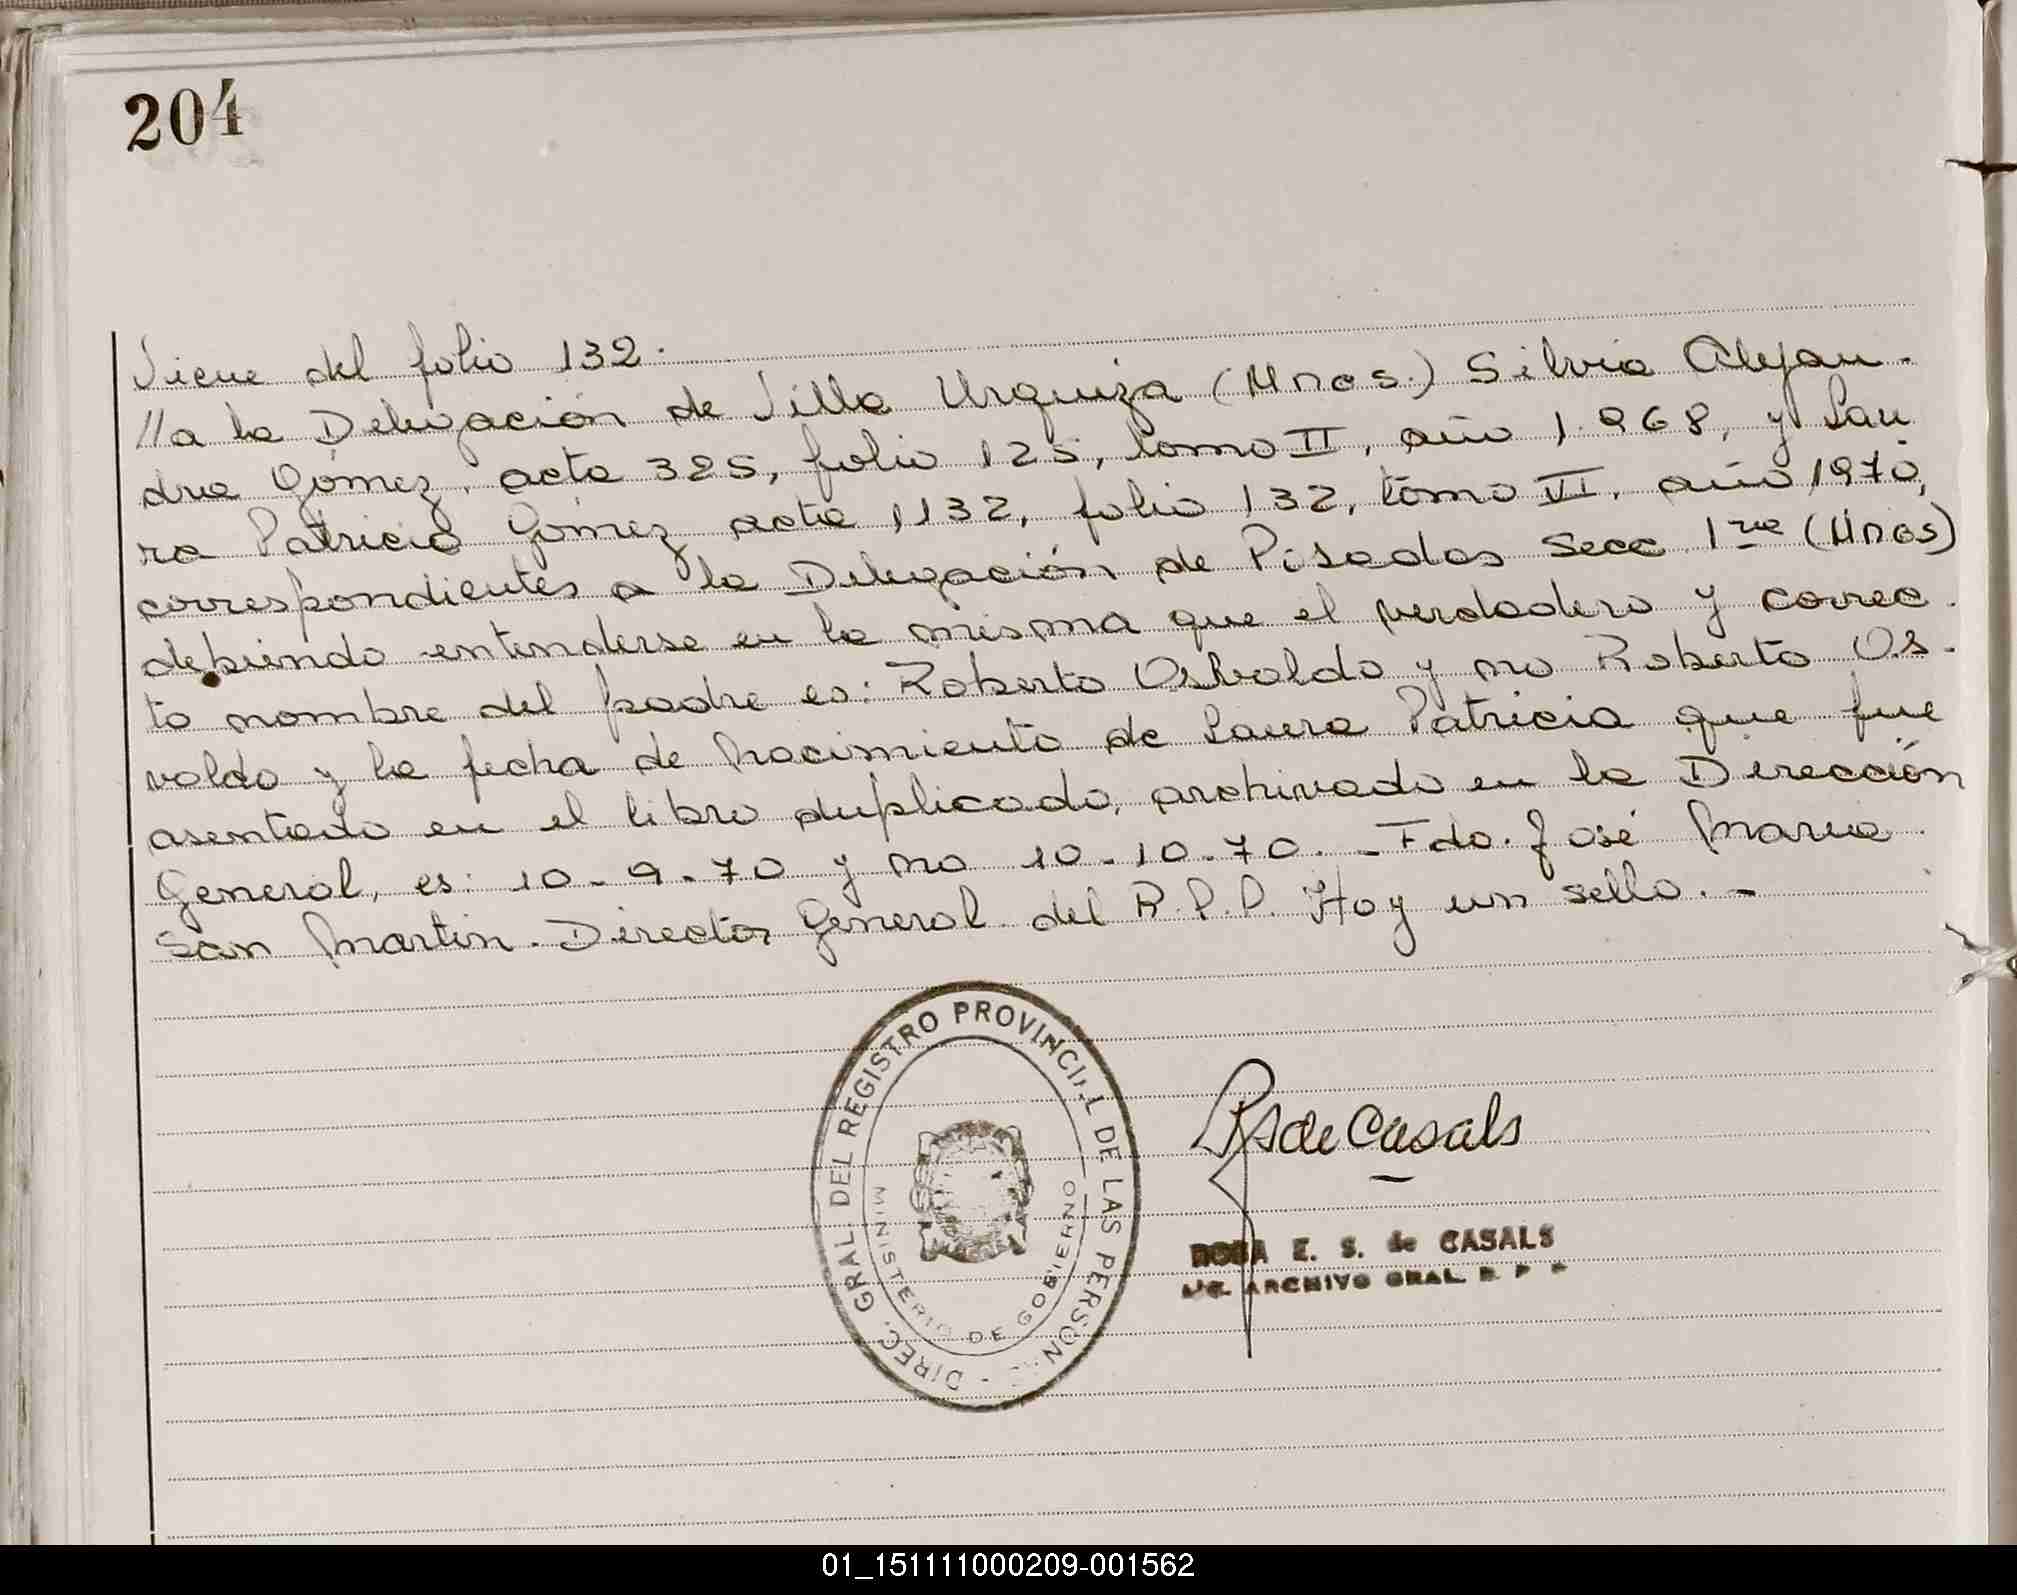 204
Viene del folio 132.
//a la Delegación de Villa Urquiza (Mnes.) Silvia Alejan-
dra Gómez, acta 325, folio 125, tomo II, año 1.968, y Lau
ra Patricia Gómez acta 1132, folio 132, tomo VI, año 1970,
correspondientes a la Delegación de Posadas Secc 1ra (Mnes)
debiendo entenderse en la misma que el verdadero y correc-
to nombre del padre es: Roberto Osbaldo y no Roberto Os-
valdo y la fecha de nacimiento de Laura Patricia que fue
asentado en el libro duplicado, archivado en la Dirección
General, es: 10-9-70 y no 10-10-70.- Fdo. José Maria
San Martin. Director General del R.P.P. Hay un sello.-
DIREC. GRAL. DEL REGISTRO PROVINCIAL DE LAS PERSONAS
MINISTERIO DE GOBIERNO
de Casals
ROSA E. S. de CASALS
ARCHIVO GRAL. R. P. P.
01_151111000209-001562